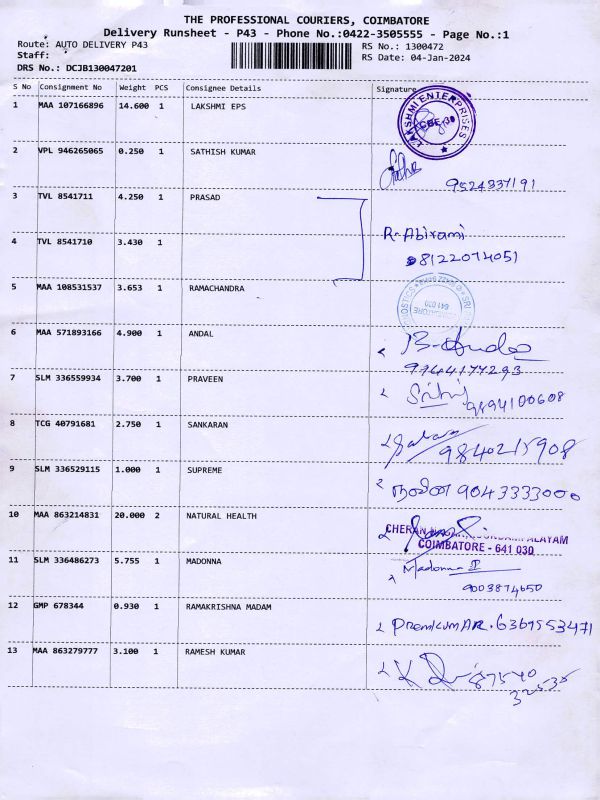 THE PROFESSIONAL COURIERS, COIMBATORE
Delivery Runsheet - P43 - Phone No.:0422-3505555 - Page No.:1
Route: AUTO DELIVERY P43 RS No.: 1300472
Staff: RS Date: 04-Jan-2024
DRS No.: DCJB130047201
S No Consignment No Weight PCS Consignee Details Signature
1 MAA 107166896 14.600 1 LAKSHMI EPS
LAKSHMI ENTERPRISES
CBE-30
2 VPL 946265065 0.250 1 SATHISH KUMAR
9524337191
3 TVL 8541711 4.250 1 PRASAD
R. Abirami
4 TVL 8541710 3.430 1
8122074051
5 MAA 108531537 3.653 1 RAMACHANDRA
641 030
6 MAA 571893166 4.900 1 ANDAL
9944177293
7 SLM 336559934 3.700 1 PRAVEEN
9894100608
8 TCG 40791681 2.750 1 SANKARAN
9840215908
9 SLM 336529115 1.000 1 SUPREME
9043333000
10 MAA 863214831 20.000 2 NATURAL HEALTH
CHERAN
COIMBATORE - 641 030
11 SLM 336486273 5.755 1 MADONNA
Madonna
9003874650
12 GMP 678344 0.930 1 RAMAKRISHNA MADAM
PremkumAR. 6369553471
13 MAA 863279777 3.100 1 RAMESH KUMAR